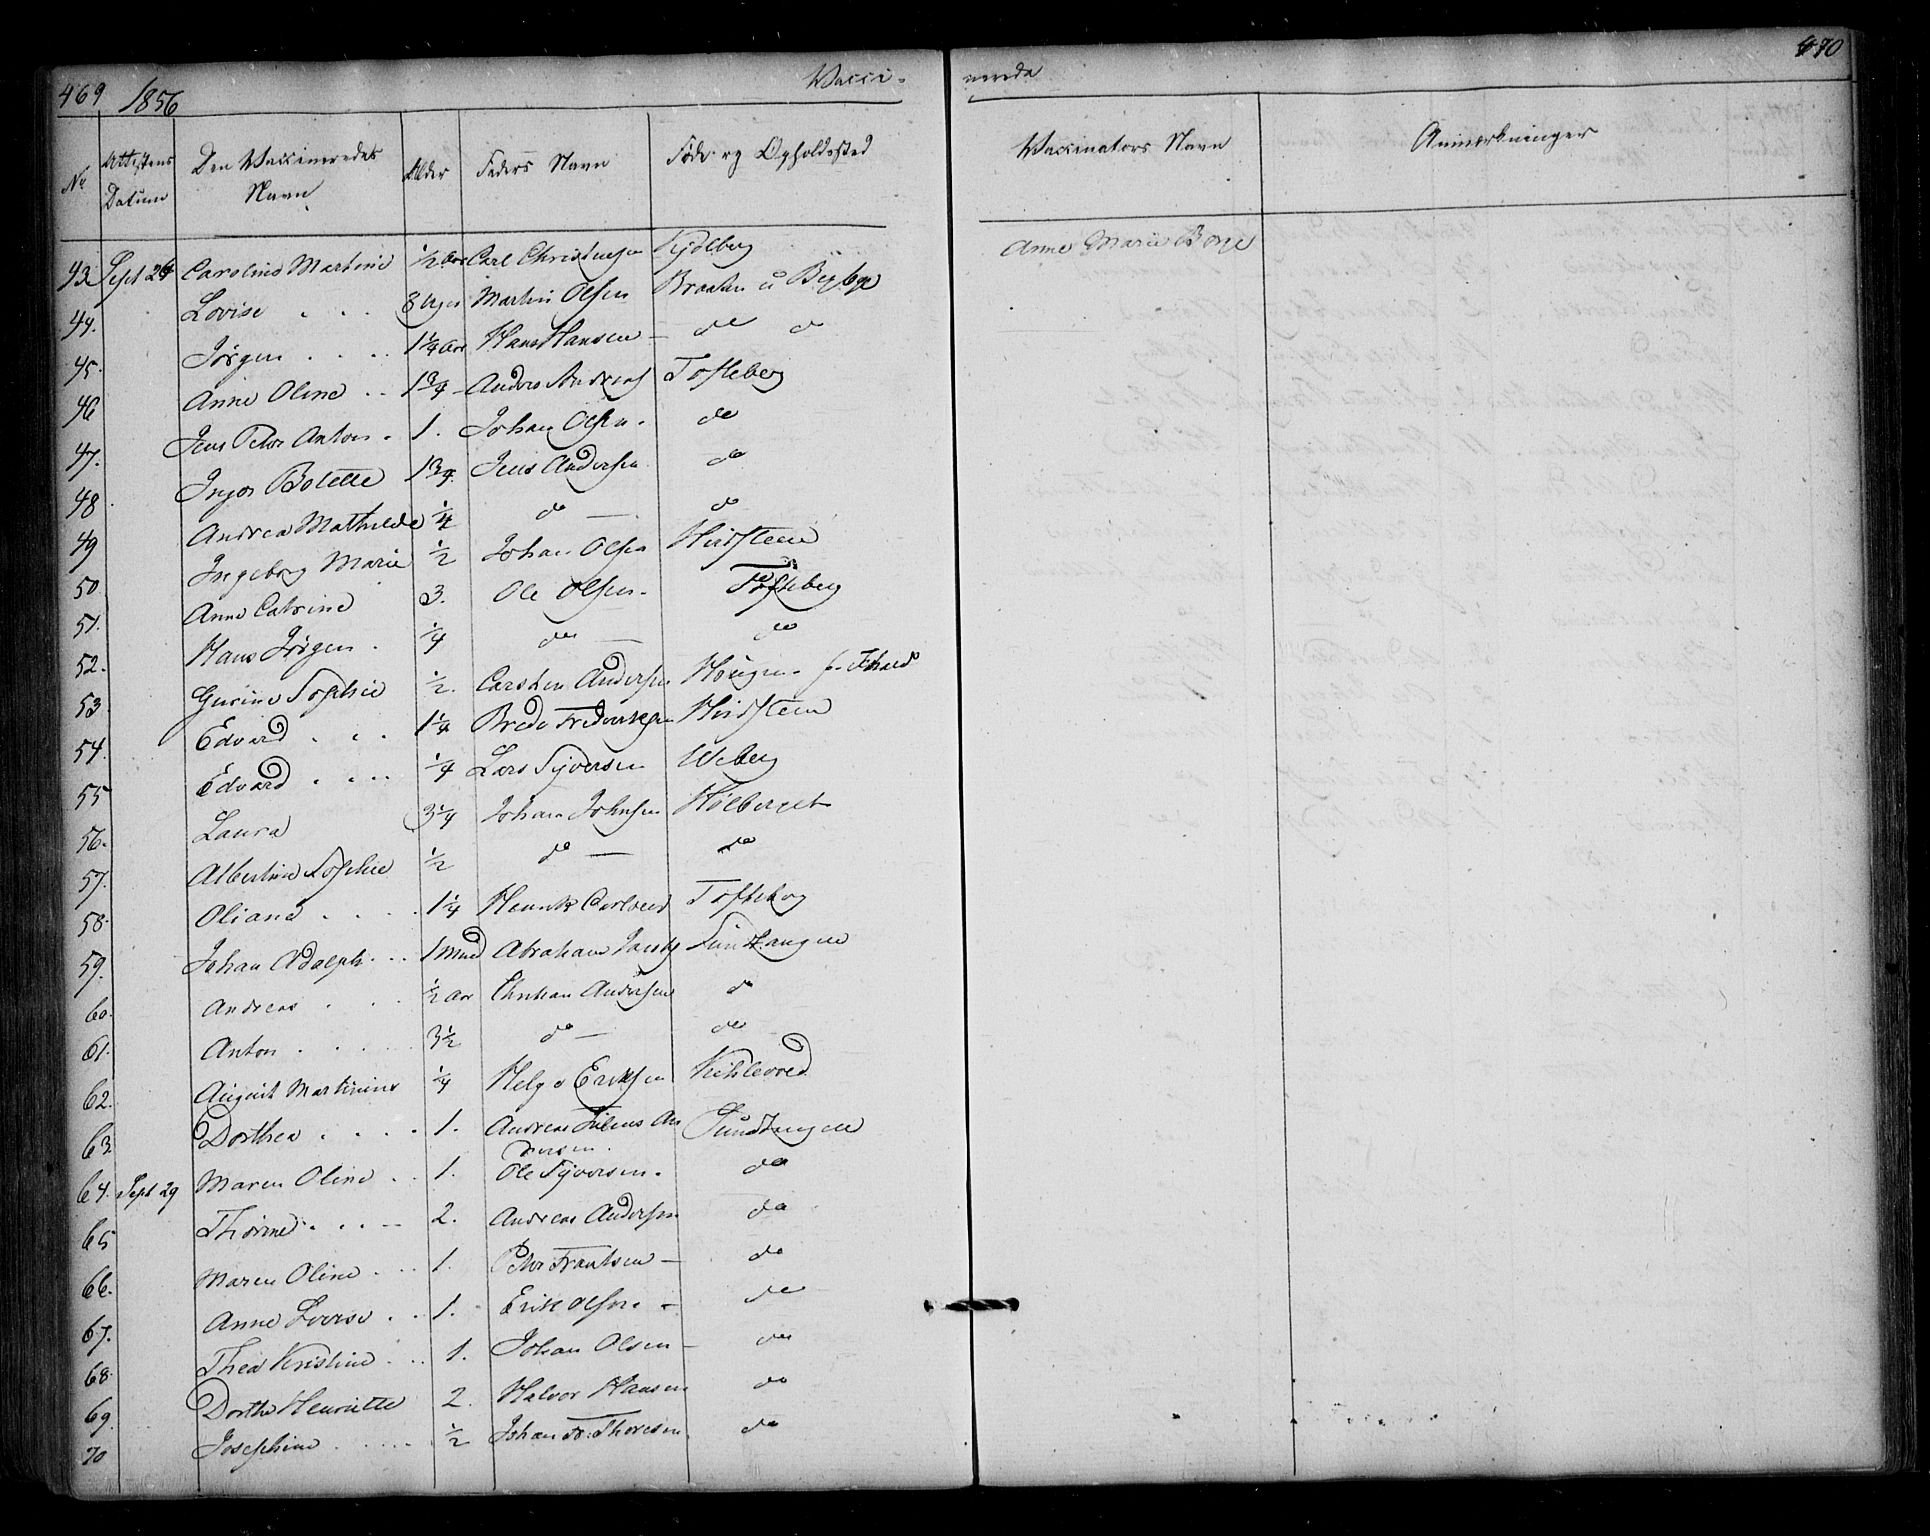 469 1856 Vacci-
nerede 470
No Attestens Datum Den Vaccineredes Navn Alder Faders Navn Føde og Opholdssted
Vaccinators Navn Anmerkninger
43. Sept 24 Caroline Martine 1/2 Aar Carl Christensen Fjdlberg Anne Marie Borge
44. Lovise 8 Uger Martin Olsen Braaten u
45. Jørgen 1 1/4 Aar Hans Hansen — do do
46 Anne Oline 1 3/4 Anders Andreas Tofteberg
47. Jens Peter Anton 1. Johan Olsen do
48 Inger Bolette 1 3/4 Jens Andersen do
49 Andrea Mathilde 1/4 do — do
50. Ingeborg Marie 1/2 Johan Olsen Hirdsteen
51. Anne Catrine 3. Ole Olsen Tofteberg
52. Hans Jørgen 1/4 do — do
53. Gurine Sophie 1/2. Carsten Andersen Haugen
54. Edvard 1 1/4 Brede Frederiksen Hirdsteen
55 Edvard 1/4 Lars Syversen Weberg
56. Laura 3 1/4 Johan Johnsen Hølberget
57. Albertine Sophie 1/2 do — do
58. Oliane 1 1/4 Henrik Carlsen Toftehoug
59. Johan Adolph 1 Mnd Abraham Jacobs Sundtangen
60. Andreas 1/2 Aar Christian Andersen do
61. Anton 3 1/2 do — do
62. August Martinius 1/4 Helge Eriksen Kihlesred
63. Dorthea 1. Andreas Julius An
dersen. Sundtangen
64. Sept 29 Maren Oline 1. Ole Syversen. do
65 Thorine 2. Andreas Andersen do
66. Maren Oline 1. Peter Frantsen — do
67. Anne Lovise 1. Erik Olsen — do
68. Thea Kristine 1. Johan Olsen — do
69. Dorthe Henriette 2. Halvor Hansen do
70 Josephine 1/2 Johan Fr. Thoresen do